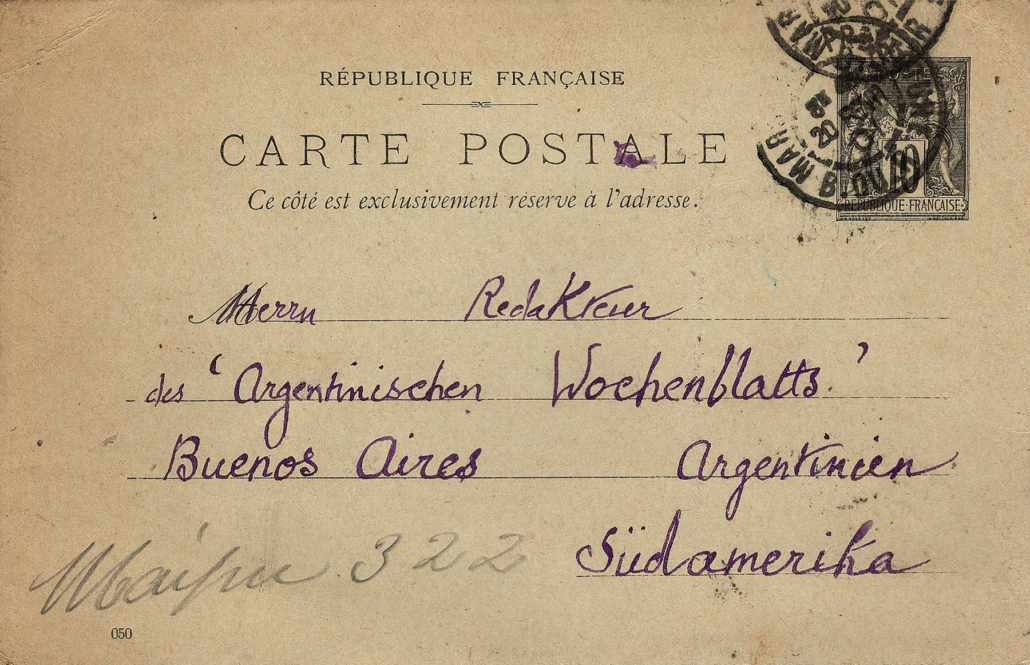 RÉPUBLIQUE FRANÇAISE
CARTE POSTALE
Ce côté est exclusivement réservé à l'adresse.
10
RÉPUBLIQUE·FRANÇAISE
Herrn Redakteur
des 'Argentinischen Wochenblatts'
Buenos Aires Argentinien
Südamerika
Maipu 322
050